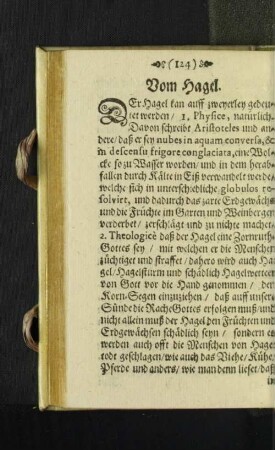 (124)
Vom Hagel.
DEr Hagel kan auff zweyerley gedeu-
tet werden / 1. Physicè, natürlich.
Davon schreibt Aristoteles und an-
dere / daß er sey nubes in aquam conversa, &
in descensu frigore conglaciata, eine Wol-
cke so zu Wasser worden / und in dem herab-
fallen durch Kälte in Eiß verwandelt werde /
welche sich in unterschiedliche globulos re-
solvirt, und dadurch das zarte Erdgewächs
und die Früchte im Garten und Weinberge
verderbet / zerschlägt und zu nichte machet.
2. Theologicè daß der Hagel eine Zornruth
Gottes sey / mit welcher er die Menschen
züchtiget und straffet / dahero wird auch Ha-
gel / Hagelsturm und schädlich Hagelwetter
von Gott vor die Hand genommen / den
Korn-Segen einzuziehen / daß auff unser
Sünde die Rache Gottes erfolgen muß / und
nicht allein muß der Hagel den Früchten und
Erdgewächsen schädlich seyn / sondern es
werden auch offt die Menschen von Hagel
todt geschlagen / wie auch das Viehe / Kühe /
Pferde und anders / wie man denn lieset / daß
in